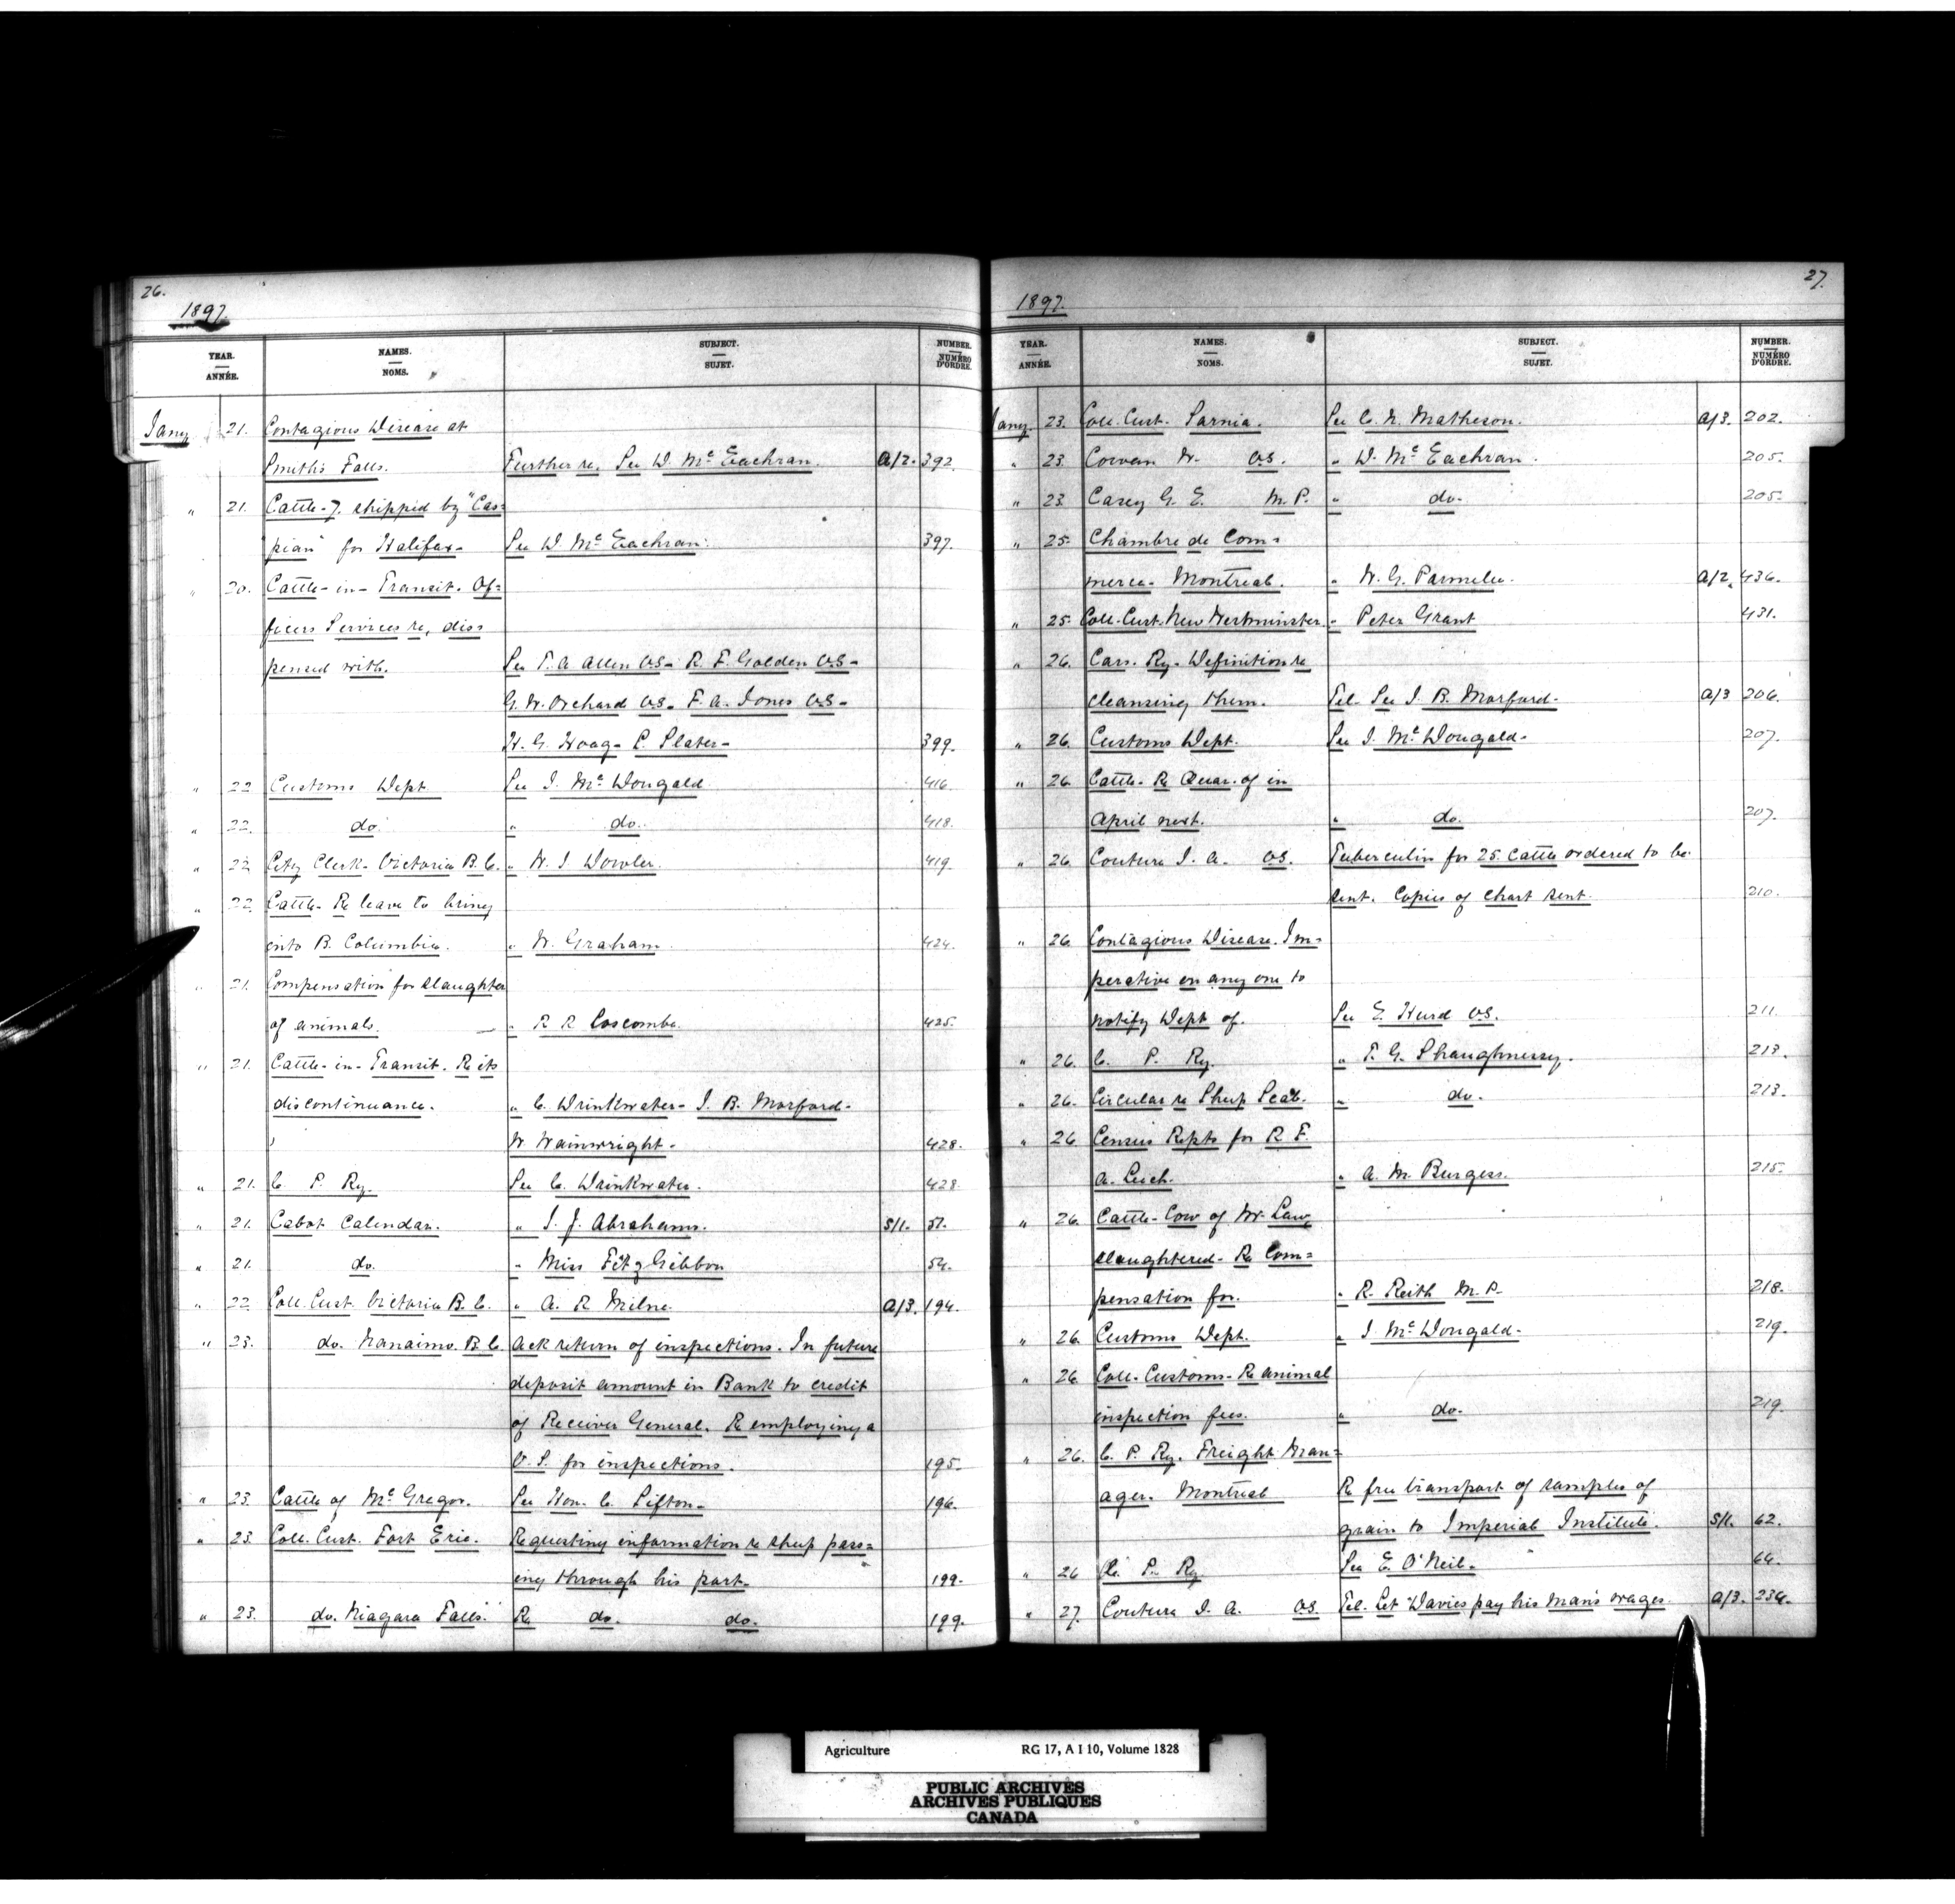 26.
1897.
YEAR. ANNÉE. NAMES. NOMS. SUBJECT. SUJET. NUMBER. NUMÉRO D'ORDRE.
Jany 21. Contagious Disease at
Smith's Falls. Further re. See D. McEachran. A/2. 392.
" 21. Cattle - 7. shipped by "Cas=
pian" for Halifax - See D McEachran. 397.
" 20. Cattle-in-Transit. Of=
ficers Services re, dis=
pensed with. See T. A. Allen V.S. - R. F. Golden V.S. -
G. W. Orchard V.S. - F. A. Jones V.S. -
H. G. Hoag - C. Slater - 399.
" 22 Customs Dept See J. McDougald 416
" 22. do. " do. 418.
" 22 City Clerk - Victoria B. C. " W. J. Dowler. 419.
" 22. Cattle - Re leave to bring
into B. Columbia. " W. Graham. 424.
" 21. Compensation for slaughter
of animals. - " R R Loscombe. 425.
" 21. Cattle-in-Transit. Re its
discontinuance. " C. Drinkwater - J. B. Morford -
W Wainwright - 428.
" 21. C. P. Ry. See C. Drinkwater. 428.
" 21. Cabot Calendar. " S. J. Abrahams. S/1. 51.
" 21. do. " Miss FitzGibbon 54.
" 22. Coll. Cust. Victoria B. C. " A. R Milne. A/3. 194.
" 23. do. Nanaimo. B. C. Ack return of inspections. In future
deposit amount in Bank to credit
of Receiver General. Re employing a
V. S. for inspections. 195.
" 23. Cattle of McGregor. See Hon. C. Sifton - 196.
" 23. Coll. Cust. Fort Erie. Requesting information re sheep pass=
ing through his port. 199.
" 23. do. Niagara Falls. Re do. do. 199.
27.
1897.
YEAR. ANNÉE. NAMES. NOMS. SUBJECT. SUJET. NUMBER. NUMÉRO D'ORDRE.
Jany. 23. Coll. Cust. Sarnia. See C. N. Matheson. A/3. 202.
" 23. Cowan W. V.S. " D. McEachran. 205.
" 23. Casey G. E. M. P. " do. 205.
" 25. Chambre de Com=
merce - Montreal. " W. G. Parmelee. A/2. 436.
" 25. Coll. Cust. New Westminster. " Peter Grant 431.
" 26. Cars. Ry. - Definition re
cleansing them. Tel. See J. B. Morford. A/3 206.
" 26. Customs Dept. See J. McDougald - 207.
" 26 Cattle - Re Quar. of in
April next. " do. 207.
" 26. Couture J. A. V.S. Tuberculin for 25 cattle ordered to be
sent. Copies of chart sent. 210.
" 26. Contagious Disease. Im=
perative on any one to
notify Dept of. See E. Hurd V.S. 211.
" 26. C. P. Ry. " T. G. Shaughnessy. 213.
" 26. Circular re Sheep Scab. " do. 213.
" 26 Census Repts for R F.
A. Leich. " A. M. Burgess. 215.
" 26. Cattle - Cow of Mr Law
slaughtered - Re Com=
pensation for. " R. Reith M. P. 218.
" 26. Customs Dept. " J. McDougald - 219.
" 26 Coll. Customs - Re animal
inspection fees. " do. 219.
" 26. C. P. Ry. Freight Man=
ager. Montreal Re free transport of samples of
grain to Imperial Institute. S/1. 62.
" 26 C. P. Ry. See E. O'Neil - 64.
" 27. Couture J. A. V.S. Tel. Let Davies pay his man's wages. A/3. 234.
Agriculture RG 17, A I 10, Volume 1828
PUBLIC ARCHIVES
ARCHIVES PUBLIQUES
CANADA